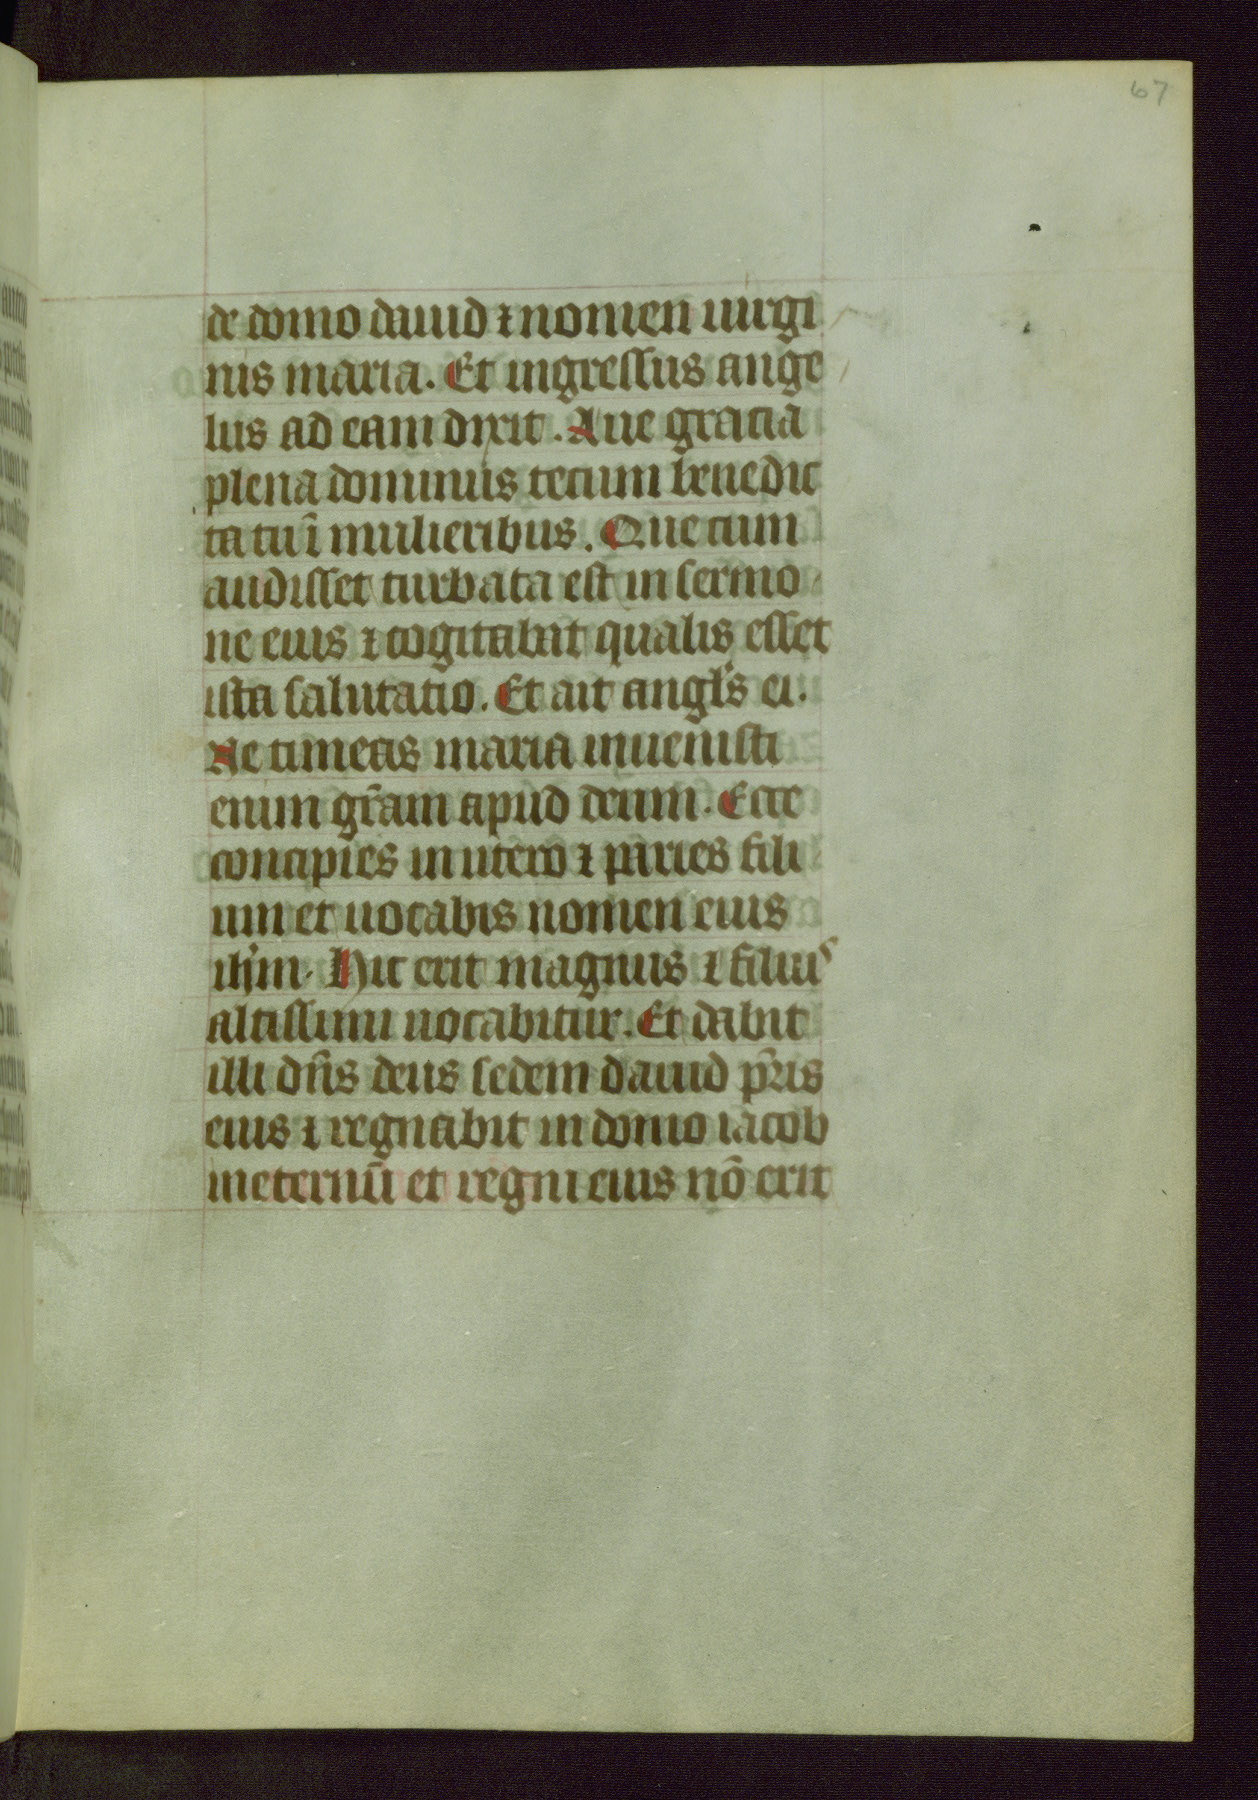 67
de domo dauid ⁊ nomen uirgi
nis maria. Et ingressus ange
lus ad eam dixit. Aue gracia
plena dominus tecum benedic
ta tu ī mulieribus. Que cum
audisset turbata est in sermo
ne eius ⁊ cogitabat qualis esset
ista salutatio. Et ait angl's ei.
Ne timeas maria inuenisti
enim gr̄am apud deum. Ecce
concipies in utero ⁊ paries fili
um et uocabis nomen eius
ih̄m. Hic erit magnus ⁊ filius
altissimi uocabitur. Et dabit
illi dn̄s deus sedem dauid pr̄is
eius ⁊ regnabit in domo iacob
in eternū et regni eius nō erit